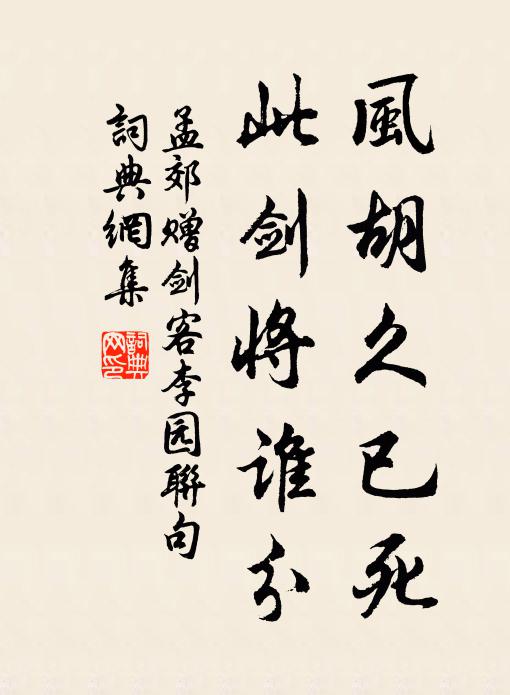 風胡久已死
此劍將誰分
孟郊赠劍客李园聯句
詞典網集
詞典
网印